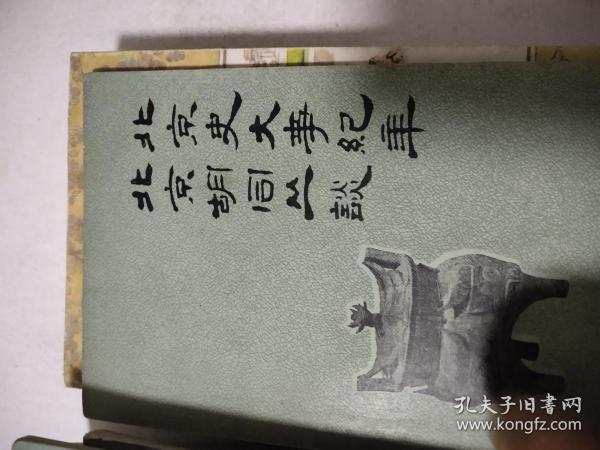 北京史大事紀年
北京胡同丛談
孔夫子旧書网
www.kongfz.com